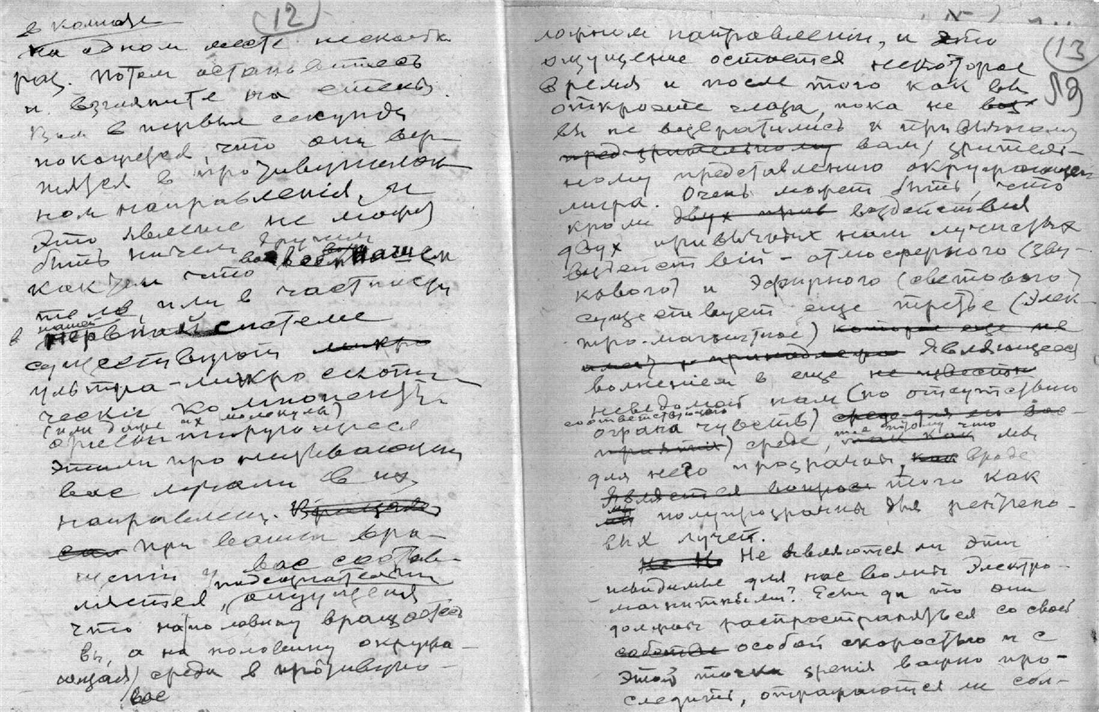 (12)
в комнате
на одном месте несколько
раз, потом остановитесь
и взгляните на стены.
Вам в первые секунды
покажется, что они вер-
тятся в противуполож
ном направленіи, и
Это явление не может
быть ничем другим
как тем что во всем нашем
теле, или в частности
в нашей нервной системе
существуют микро
ультра-микро скопи-
ческие компоненты
(или даже их молекулы)
ориентирующиеся
этими пронизывающими
вас лучами в их
направлении. Вращая
при вашем вра-
щеніи у вас состав-
ляется подсознательно
ощущения
что на половину вращаетесь
вы, а на половину окружа-
ющая вас среда в противупо-
(13)
ложном направленіи, и это
ощущение остается некоторое
время и после того как вы
откроете глаза, пока не воз
вы не возвратились к привычному
представлению вам, зритель-
ному представлению окружающего
мира. Очень может быть что
кроме двух прив воздействия
двух привычных нам лучистых
воздействий – атмосферного (зву-
кового) и Эфирного (светового)
существует еще третье (Элек-
тро-магнитное) которое еще не
являющееся
волнением в еще не известной
неведомой нам (по отсутствию
соответствующего
органа чувств) среде для ее вос
приятия) среде потому что
так как мы
для него прозрачны, как вроде
является вопрос того как
мы полупрозрачны для рентгено-
вых лучей.
Не являются ли эти
невидимые для нас волны Электро-
магнитными? Если да то они
должны распространяться со своей
особой скоростью и с
этой точки зрения важно про-
следить, отражаются ли сол-